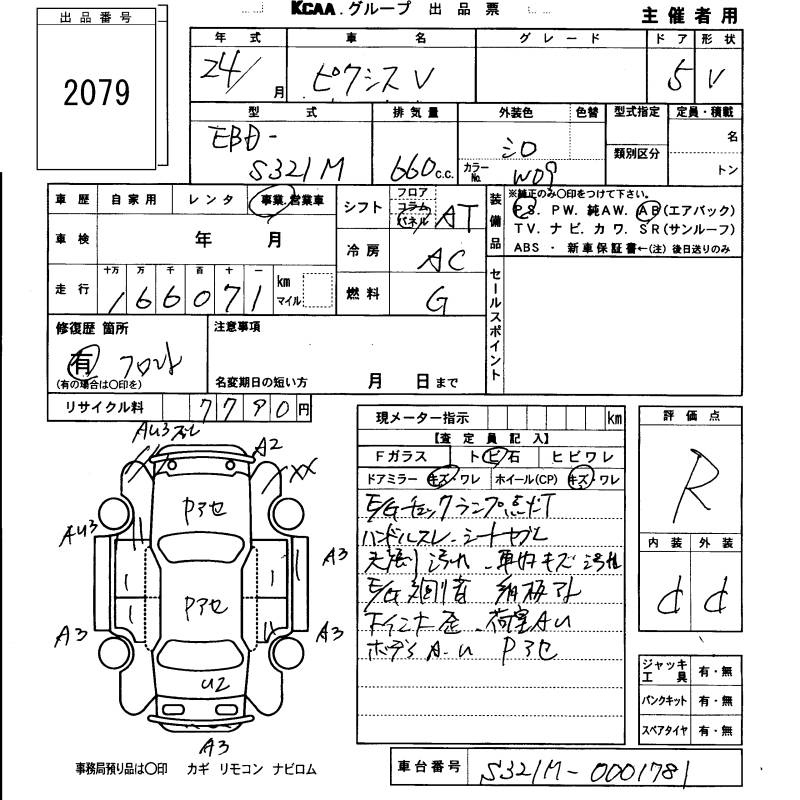 KCAA.グループ 出品票
主催者用
出品番号
2079
年式 車名 グレード ドア 形状
24/ 月 ピクシスV 5 V
型式 排気量 外装色 色替 型式指定 定員・積載
EBD-
S321M 660c.c. シロ カラーNo. W09 類別区分 名
トン
車歴 自家用 レンタ 事業.営業車
シフト フロア コラム パネル AT
装備品 ※純正のみ〇印をつけて下さい。
PS. PW. 純AW. AB(エアバック)
TV. ナビ. カワ. SR(サンルーフ)
ABS ・ 新車保証書←(注) 後日送りのみ
車検 年 月
冷房 AC
走行 十万 万 千 百 十 一
166071 km マイル
燃料 G
セールスポイント
修復歴 箇所
有 フロント
(有の場合は〇印を)
注意事項
名変期日の短い方 月 日まで
リサイクル料 7790円
現メーター指示 km
評価点
R
【査定員記入】
Fガラス トビ石 ヒビワレ
ドアミラー キズ・ワレ ホイール(CP) キズ・ワレ
E/Gチェックランプ点灯
ハンドルスレ シートヤブレ
天張り汚れ 車内キズ 汚れ
荷室AU
ボディA.U Pアセ
内装 外装
d d
AU3 ズレ
A2
XX
Pアセ
AU3
A3
Pアセ
A3
A3
U2
A3
ジャッキ工具 有・無
パンクキット 有・無
スペアタイヤ 有・無
事務局預り品は〇印 カギ リモコン ナビロム
車台番号 S321M-0001781